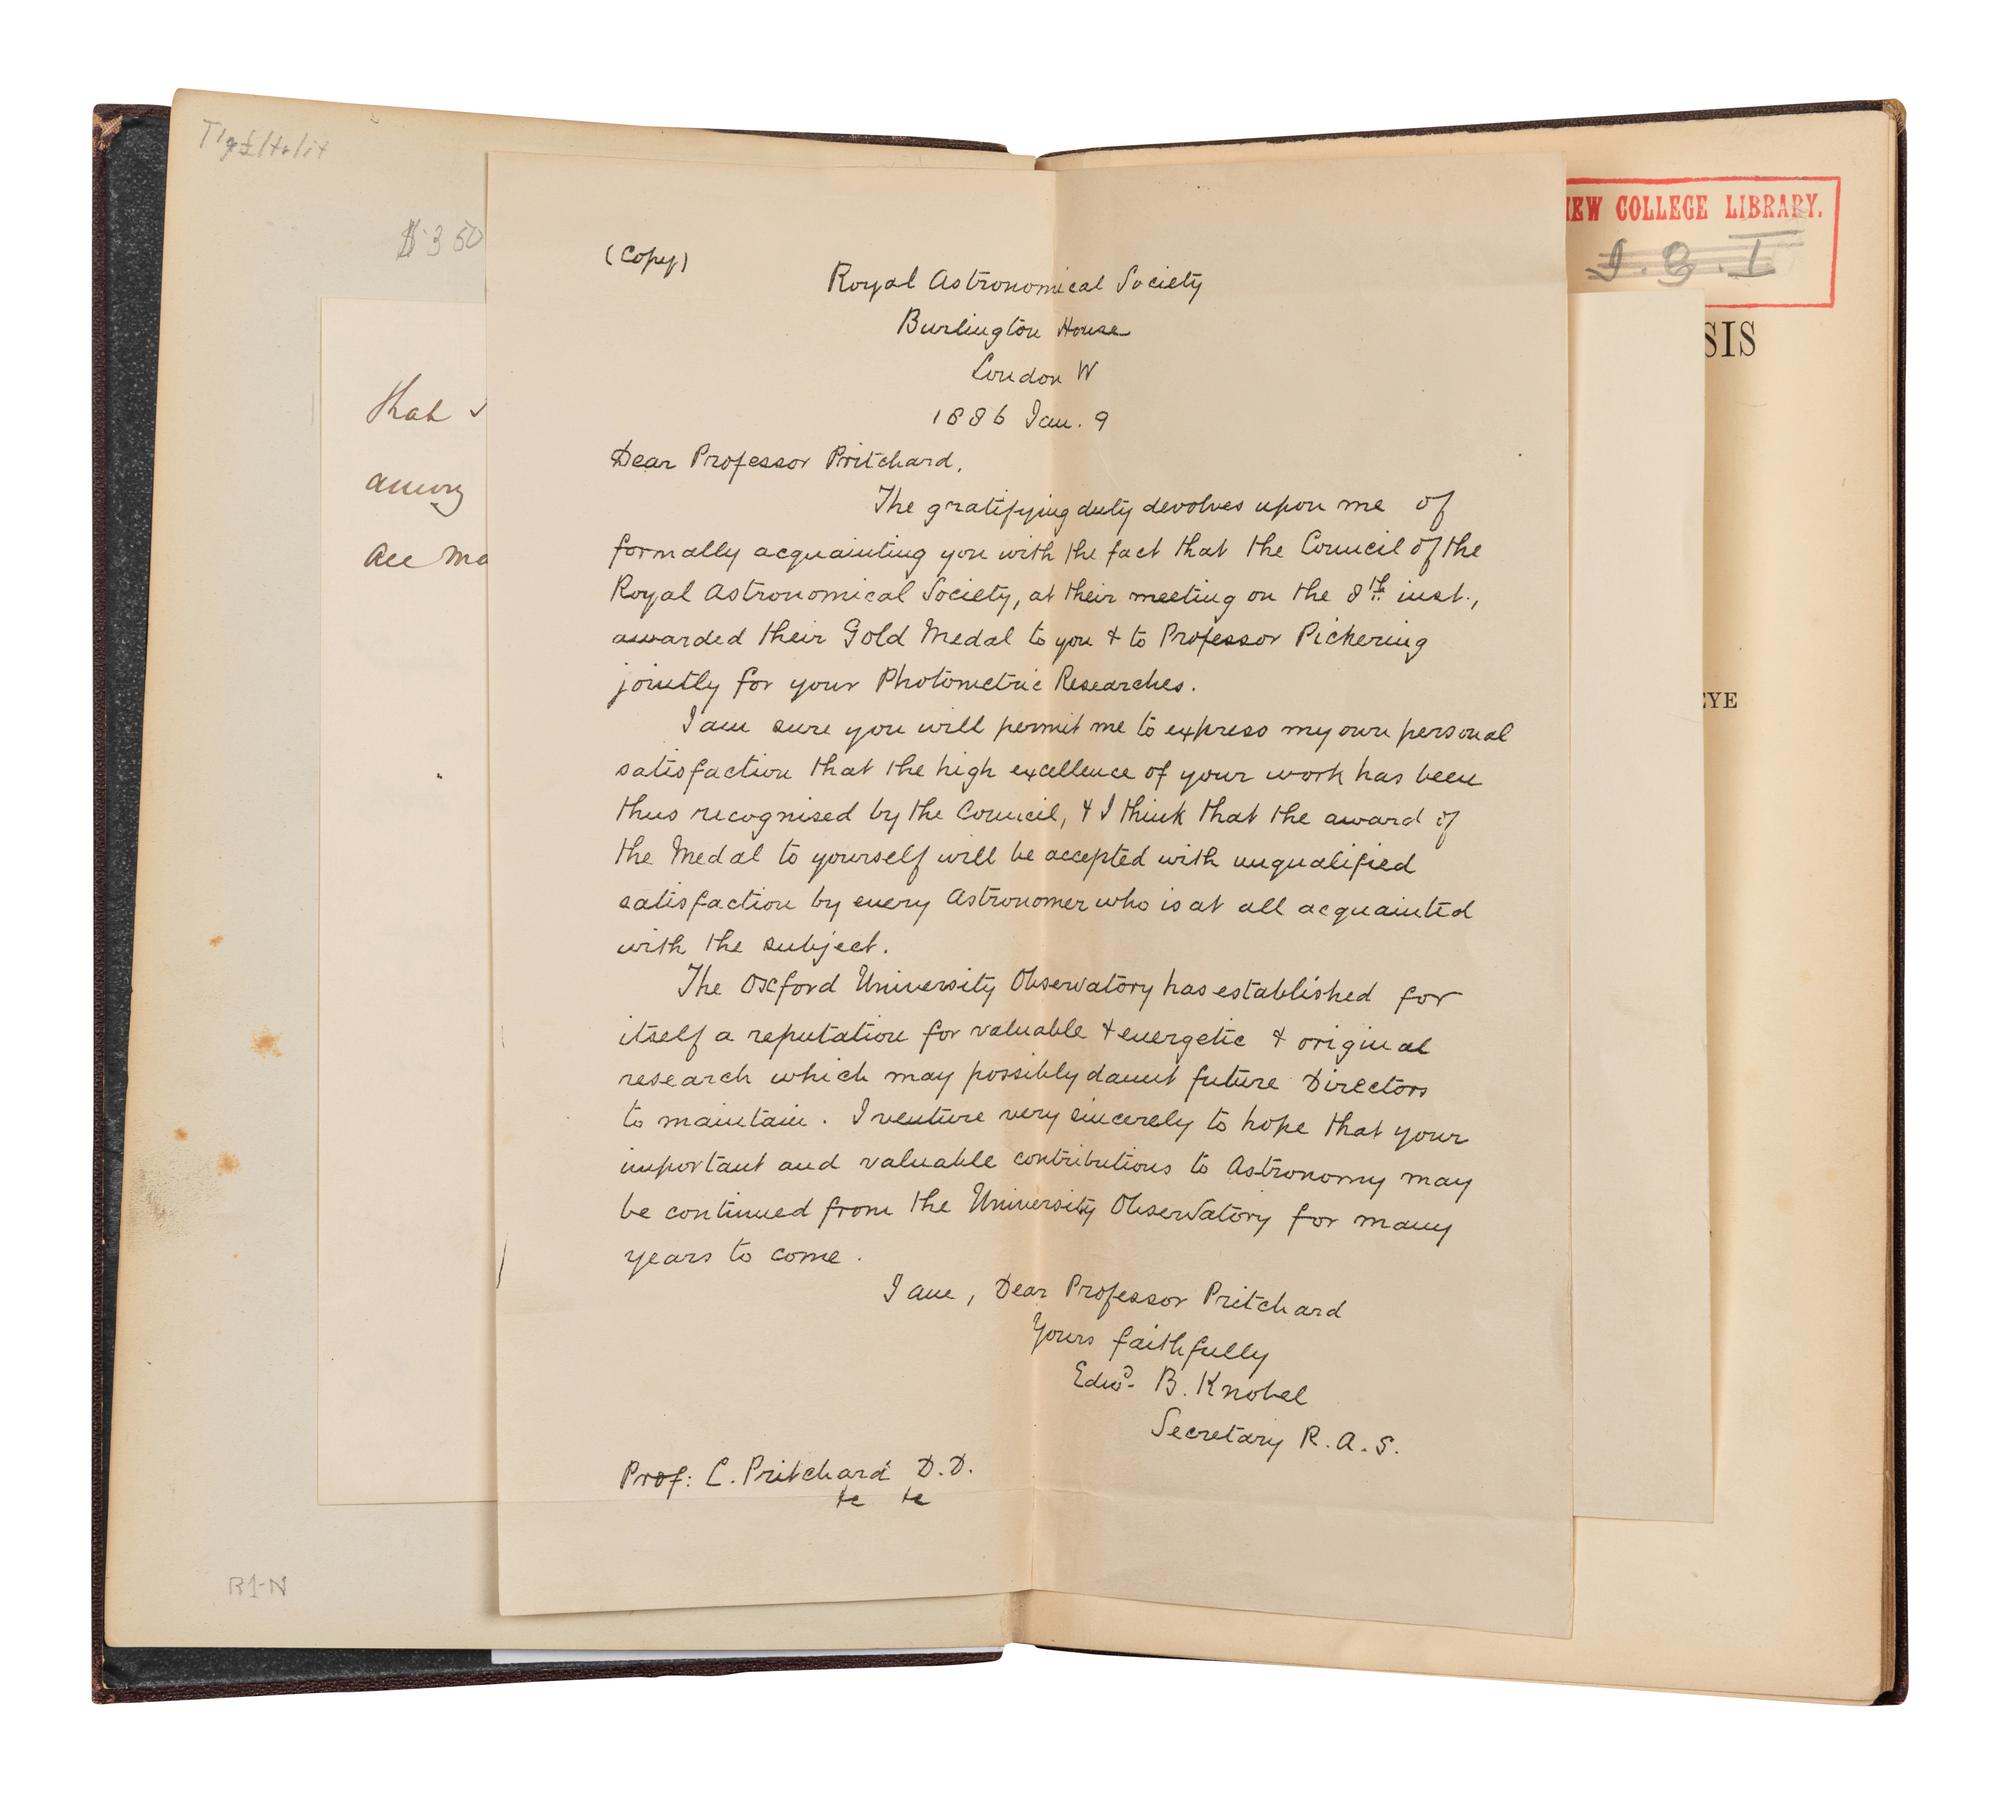 $350
that
among
All Ma
R1-N
(Copy)
Royal Astronomical Society
Burlington House
London W
1886 Jan. 9
Dear Professor Pritchard,
The gratifying duty devolves upon me of
formally acquainting you with the fact that the Council of the
Royal Astronomical Society, at their meeting on the 8th inst.,
awarded their Gold Medal to you & to Professor Pickering
jointly for your Photometric Researches.
I am sure you will permit me to express my own personal
satisfaction that the high excellence of your work has been
thus recognised by the Council, & I think that the award of
the Medal to yourself will be accepted with unqualified
satisfaction by every Astronomer who is at all acquainted
with the subject.
The Oxford University Observatory has established for
itself a reputation for valuable & energetic & original
research which may possibly daunt future Directors
to maintain. I venture very sincerely to hope that your
important and valuable contributions to Astronomy may
be continued from the University Observatory for many
years to come.
I am, Dear Professor Pritchard
Yours faithfully
Edwd. B. Knobel
Secretary R.A.S.
Prof: C. Pritchard D.D.
&c &c
NEW COLLEGE LIBRARY.
SIS
EYE